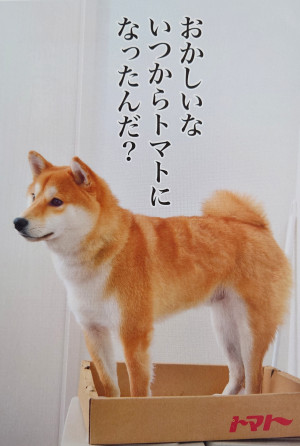 おかしいな
いつからトマトに
なったんだ？
トマト